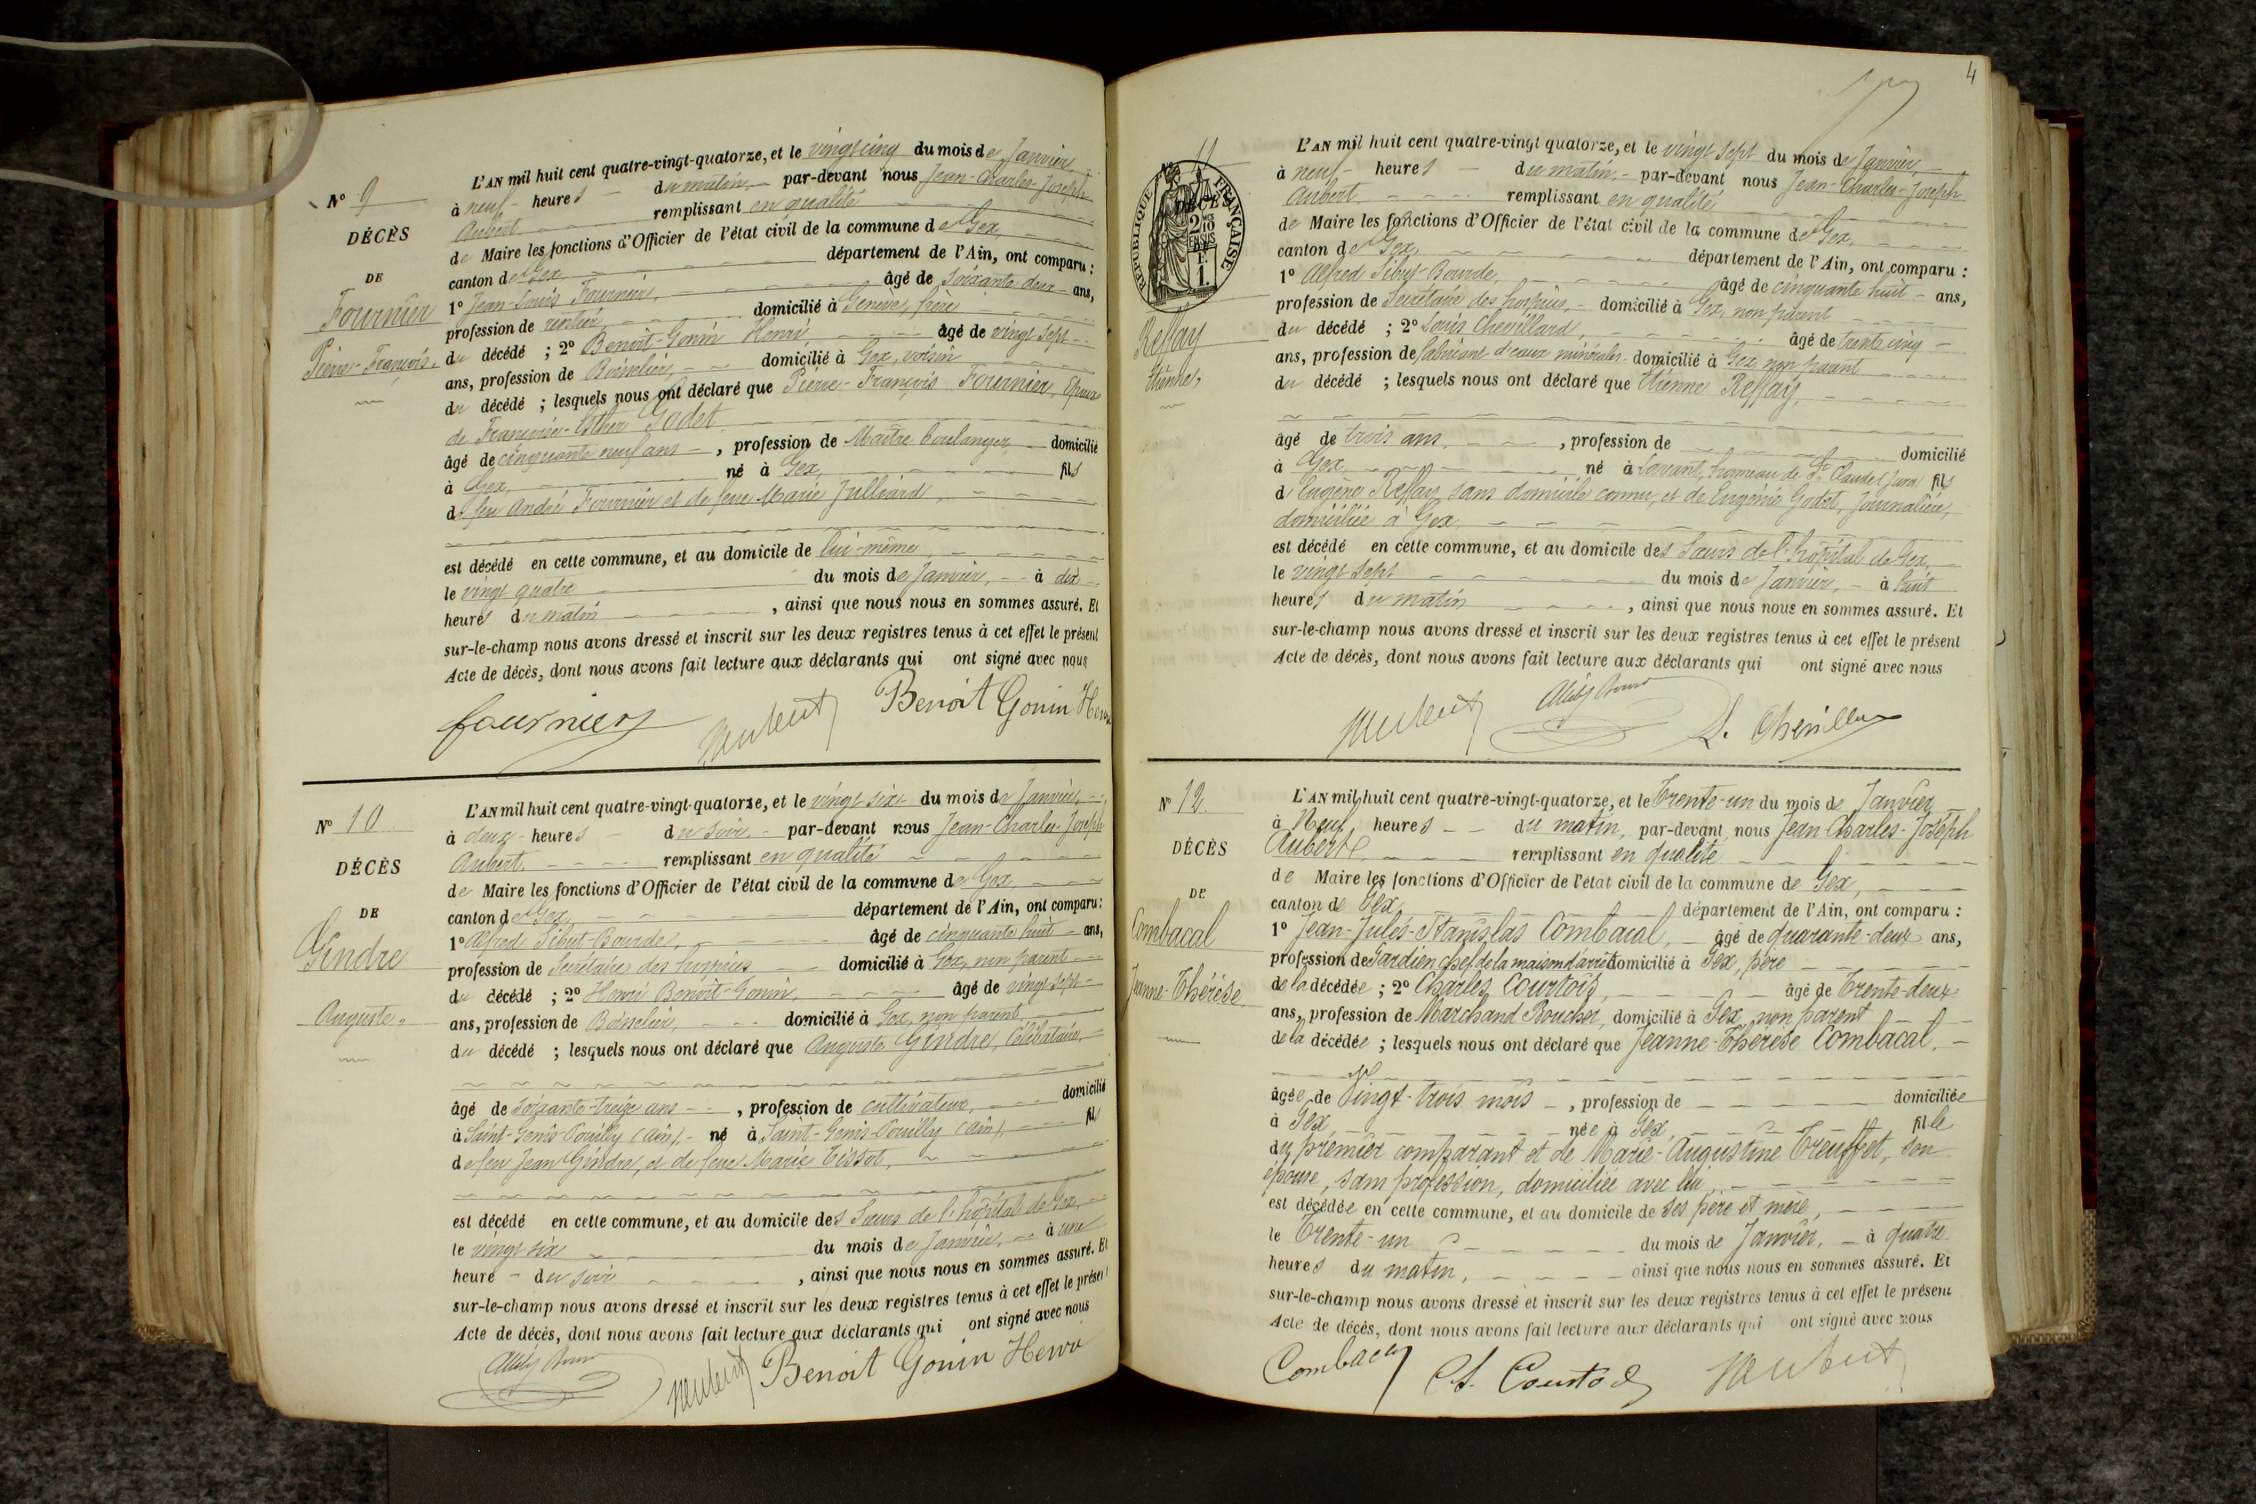 N° 9
DÉCÈS
DE
Fournier
Pierre-François.
L'AN mil huit cent quatre-vingt-quatorze, et le vingt cinq du mois de Janvier,
à neuf heures du matin, par-devant nous Jean-Charles-Joseph
Aubert remplissant en qualité
de Maire les fonctions d'Officier de l'état civil de la commune de Gex,
canton de Gex, département de l'Ain, ont comparu :
1° Jean-Louis Fournier, âgé de soixante-deux ans,
profession de rentier domicilié à Genève, frère
du décédé ; 2° Benoit-Gonin Henri âgé de vingt sept
ans, profession de Boisselier, domicilié à Gex, voisin
du décédé ; lesquels nous ont déclaré que Pierre-François Fournier, époux
de Françoise-Esther Godet
âgé de cinquante neuf ans, profession de Maître boulanger, domicilié
à Gex, né à Gex, fils
de feu André Fournier et de feue Marie Julliard,
est décédé en cette commune, et au domicile de lui-même,
le vingt quatre du mois de Janvier, à dix
heures du matin, ainsi que nous nous en sommes assuré. Et
sur-le-champ nous avons dressé et inscrit sur les deux registres tenus à cet effet le présent
Acte de décès, dont nous avons fait lecture aux déclarants qui ont signé avec nous
fournier Aubert Benoit Gonin Henri
N° 10
DÉCÈS
DE
Gindre
Auguste.
L'AN mil huit cent quatre-vingt-quatorze, et le vingt six du mois de Janvier,
à deux heures du soir, par-devant nous Jean-Charles-Joseph
Aubert, remplissant en qualité
de Maire les fonctions d'Officier de l'état civil de la commune de Gex
canton de Gex, département de l'Ain, ont comparu :
1° Alfred Sibut-Bourde, âgé de cinquante huit ans,
profession de Secrétaire des hospices domicilié à Gex, non parent
du décédé ; 2° Henri Benoit-Gonin, âgé de vingt sept
ans, profession de Boisselier, domicilié à Gex, non parent
du décédé ; lesquels nous ont déclaré que Auguste Gindre, Célibataire,
âgé de soixante-treize ans, profession de cultivateur, domicilié
à Saint-Genis-Pouilly (Ain), né à Saint-Genis-Pouilly (Ain), fils
de feu Jean Gindre, et de feue Marie Tissot,
est décédé en cette commune, et au domicile des Sœurs de l'hôpital de Gex,
le vingt six du mois de Janvier, à une
heure du soir, ainsi que nous nous en sommes assuré. Et
sur-le-champ nous avons dressé et inscrit sur les deux registres tenus à cet effet le présent
Acte de décès, dont nous avons fait lecture aux déclarants qui ont signé avec nous
Aubert Benoit Gonin Henri
4
N° 11
DÉCÈS
RÉPUBLIQUE FRANÇAISE
2/10 EN SUS
1.
Reffay
Etienne,
L'AN mil huit cent quatre-vingt quatorze, et le vingt sept du mois de Janvier,
à neuf heures du matin, par-devant nous Jean-Charles-Joseph
Aubert remplissant en qualité
de Maire les fonctions d'Officier de l'état civil de la commune de Gex,
canton de Gex, département de l'Ain, ont comparu :
1° Alfred Sibut-Bourde, âgé de cinquante huit ans,
profession de Secrétaire des hospices, domicilié à Gex, non parent
du décédé ; 2° Louis Chevillard, âgé de trente cinq
ans, profession de fabricant d'eaux minérales domicilié à Gex, non parent
du décédé ; lesquels nous ont déclaré que Etienne Reffay,
âgé de trois ans, profession de domicilié
à Gex né à hameau de St Claude (Jura) fils
d'Eugène Reffay, sans domicile connu, et de Eugénie Godet, Journalière,
domiciliée à Gex,
est décédé en cette commune, et au domicile des Sœurs de l'hôpital de Gex,
le vingt sept du mois de Janvier, à huit
heures du matin, ainsi que nous nous en sommes assuré. Et
sur-le-champ nous avons dressé et inscrit sur les deux registres tenus à cet effet le présent
Acte de décès, dont nous avons fait lecture aux déclarants qui ont signé avec nous
Aubert L. Chevillard
N° 12.
DÉCÈS
DE
Combacal
Jeanne-Thérèse
L'AN mil huit cent quatre-vingt-quatorze, et le Trente-un du mois de Janvier
à Neuf heures du matin, par-devant nous Jean Charles-Joseph
Aubert, remplissant en qualité
de Maire les fonctions d'Officier de l'état civil de la commune de Gex,
canton de Gex, département de l'Ain, ont comparu :
1° Jean-Jules-Stanislas Combacal, âgé de quarante-deux ans,
profession de Gardien chef de la maison d'arrêt domicilié à Gex, père
de la décédée ; 2° Charles Courtois, âgé de Trente-deux
ans, profession de Marchand Boucher, domicilié à Gex, non parent
de la décédée ; lesquels nous ont déclaré que Jeanne-Thérèse Combacal,
âgée de Vingt-trois mois, profession de domiciliée
à Gex, née à Gex, fille
du premier comparant et de Marie-Augustine Treuffet, son
épouse, sans profession, domiciliée avec lui,
est décédée en cette commune, et au domicile de ses père et mère,
le Trente-un du mois de Janvier, à quatre
heures du matin, ainsi que nous nous en sommes assuré. Et
sur-le-champ nous avons dressé et inscrit sur les deux registres tenus à cet effet le présent
Acte de décès, dont nous avons fait lecture aux déclarants qui ont signé avec nous
Combacal Ch. Courtois Aubert